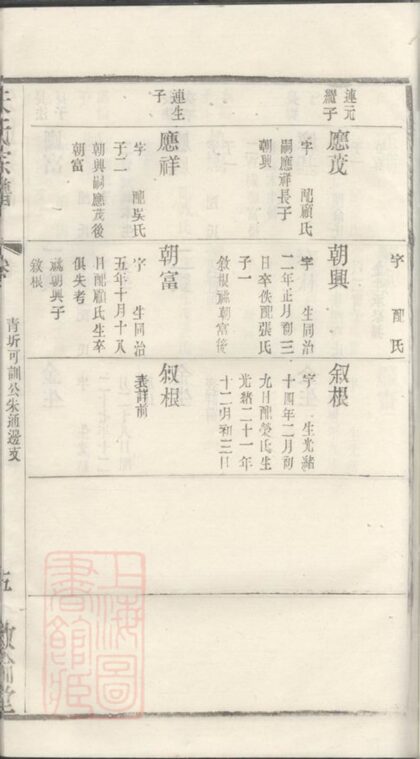 連元
繼子
應茂
字 配顧氏
嗣應祥長子
朝興
連生
子
應祥
字 配吳氏
子二
朝興嗣應茂後
朝富
字 配 氏
朝興
字 生同治
二年正月初三
日卒佚配張氏
子一
敘根祧朝富後
朝富
字 生同治
五年十月十八
日配顧氏生卒
俱失考
祧朝興子
敘根
敘根
字 生光緒
十四年二月初
九日配榮氏生
光緒二十一年
十二月初三日
敘根
表詳前
朱氏宗譜
卷
青圻可訓公朱通邊支
五
敦倫堂
上海圖
書館藏